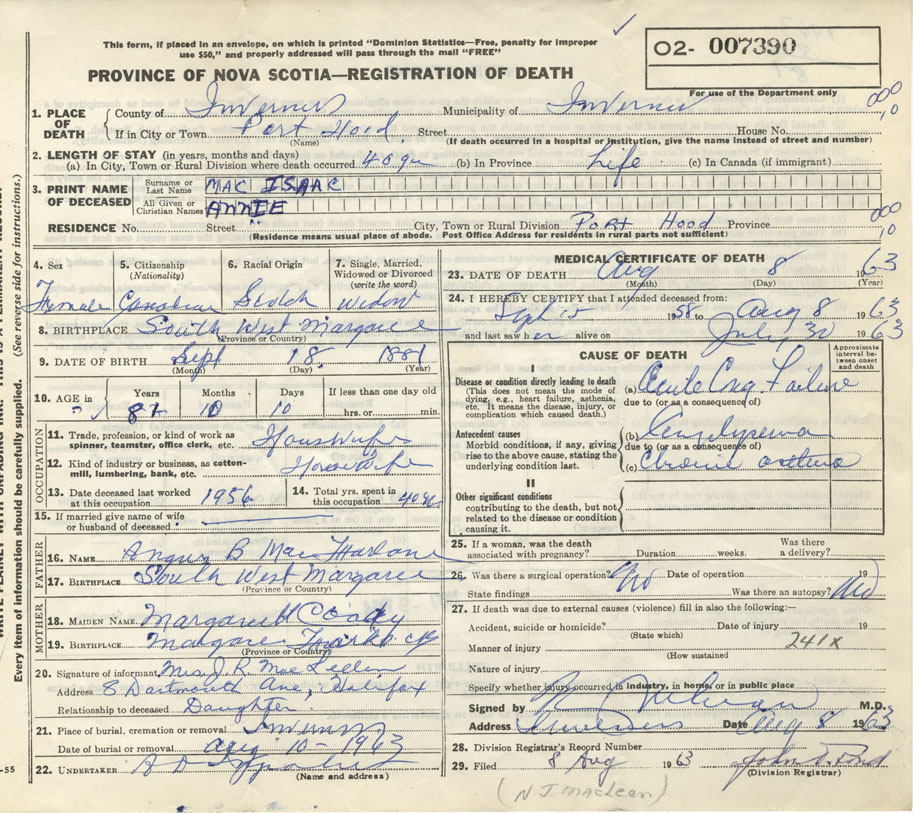 This form, if placed in an envelope, on which is printed "Dominion Statistics—Free, penalty for improper
use $50," and properly addressed will pass through the mail "FREE"
O2- 007390
For use of the Department only
PROVINCE OF NOVA SCOTIA—REGISTRATION OF DEATH
1. PLACE OF DEATH County of Inverness Municipality of Inverness
If in City or Town Port Hood Street House No.
(Name) (If death occurred in a hospital or institution, give the name instead of street and number)
2. LENGTH OF STAY (in years, months and days)
(a) In City, Town or Rural Division where death occurred 40 yr (b) In Province Life (c) In Canada (if immigrant)
3. PRINT NAME OF DECEASED Surname or Last Name MAC ISAAC
All Given or Christian Names ANNIE
RESIDENCE No. Street City, Town or Rural Division Port Hood Province
(Residence means usual place of abode. Post Office Address for residents in rural parts not sufficient)
000
10
000
10
4. Sex Female
5. Citizenship (Nationality) Canadian
6. Racial Origin Scotch
7. Single, Married, Widowed or Divorced (write the word) Widow
8. BIRTHPLACE South West Margaree
(Province or Country)
9. DATE OF BIRTH Sept 18 1881
(Month) (Day) (Year)
10. AGE in Years Months Days If less than one day old
10 10 hrs. or min.
OCCUPATION
11. Trade, profession, or kind of work as spinner, teamster, office clerk, etc. Housewife
12. Kind of industry or business, as cotton-mill, lumbering, bank, etc. Housewife
13. Date deceased last worked at this occupation 1956
14. Total yrs. spent in this occupation 40
15. If married give name of wife or husband of deceased
FATHER
16. NAME Angus B MacFarlane
17. BIRTHPLACE South West Margaree
(Province or Country)
MOTHER
18. MAIDEN NAME Margaret Coady
19. BIRTHPLACE Margaree
(Province or Country)
20. Signature of informant Mrs J. R. MacLellan
Address 8 Dartmouth Ave, Halifax
Relationship to deceased Daughter
21. Place of burial, cremation or removal Inverness
Date of burial or removal Aug 10 - 1963
22. UNDERTAKER
(Name and address)
MEDICAL CERTIFICATE OF DEATH
23. DATE OF DEATH Aug 8 1963
(Month) (Day) (Year)
24. I HEREBY CERTIFY that I attended deceased from:
Sept 15 1958 to Aug 8 1963
and last saw her alive on July 30 1963
CAUSE OF DEATH
Approximate interval between onset and death
Disease or condition directly leading to death
(This does not mean the mode of dying, e.g., heart failure, asthenia, etc. It means the disease, injury, or complication which caused death.)
(a) Acute Cong. Failure
due to (or as a consequence of)
Antecedent causes
Morbid conditions, if any, giving rise to the above cause, stating the underlying condition last.
(b) Emphysema
due to (or as a consequence of)
(c) Chronic asthma
II
Other significant conditions
contributing to the death, but not related to the disease or condition causing it.
25. If a woman, was the death associated with pregnancy? Duration weeks. Was there a delivery?
26. Was there a surgical operation? No Date of operation 19
State findings Was there an autopsy? No
27. If death was due to external causes (violence) fill in also the following:—
Accident, suicide or homicide? Date of injury 19
(State which)
Manner of injury 241X
(How sustained
Nature of injury
Specify whether injury occurred in industry, in home, or in public place
Signed by M.D.
Address Inverness Date Aug 8 1963
28. Division Registrar's Record Number
29. Filed 8 Aug 1963
(Division Registrar)
(N. J. MacLean)
-55
(See reverse side for instructions.)
Every item of information should be carefully supplied.